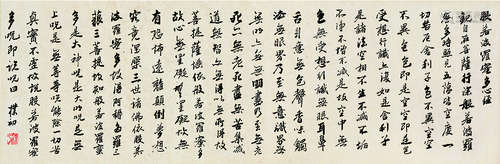 般若波羅蜜多心經
觀自在菩薩行深般若波羅
蜜多時照見五蘊皆空度一
切苦厄舍利子色不異空空
不異色色即是空空即是色
受想行識亦復如是舍利子
是諸法空相不生不滅不垢
不淨不增不減是故空中無
色無受想行識無眼耳鼻
舌身意無色聲香味觸
法無眼界乃至無意識界
無無明亦無無明盡乃至無老
死亦無老死盡無苦集滅
道無智亦無得以無所得故
菩提薩埵依般若波羅蜜多
故心無罣礙無罣礙故無
有恐怖遠離顛倒夢想
究竟涅槃三世諸佛依般若
波羅蜜多故得阿耨多羅三
藐三菩提故知般若波羅蜜
多是大神咒是大明咒是無
上咒是無等等咒能除一切苦
真實不虛故說般若波羅蜜
多咒即說咒曰 樸初